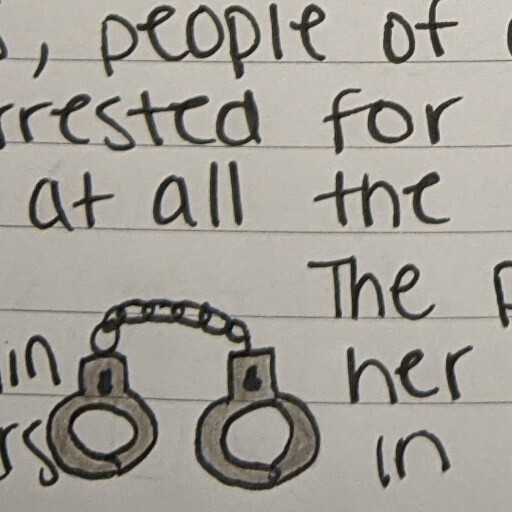 , people of
rrested for
at all the
The
in her
rs in